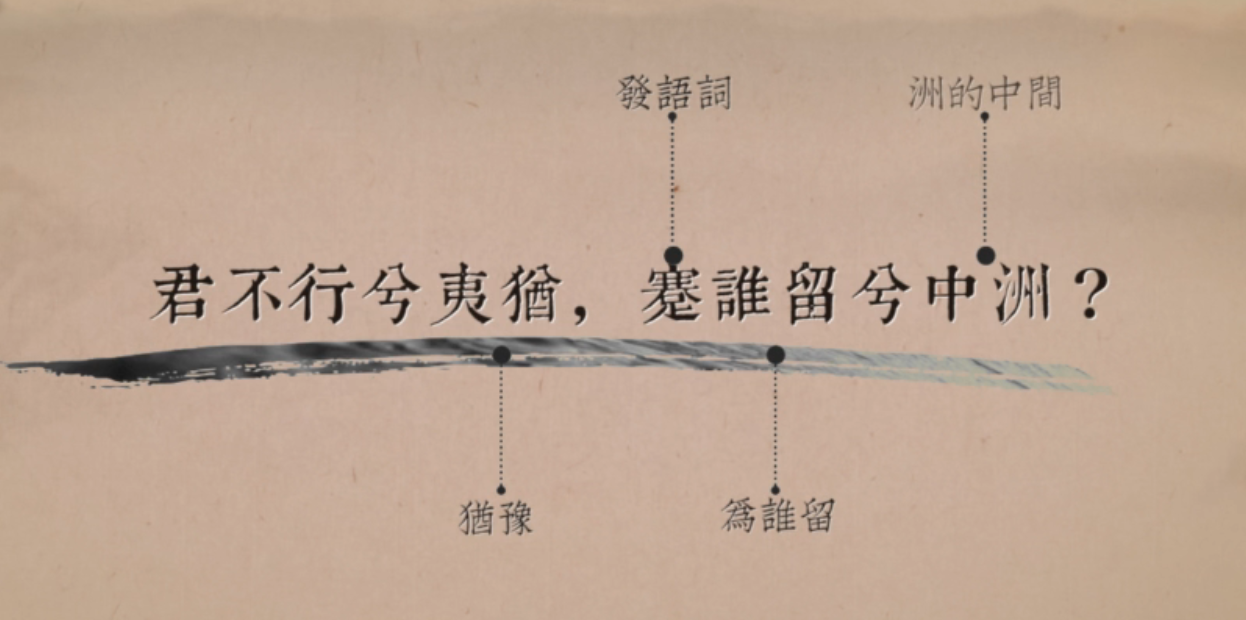 發語詞 洲的中間
君不行兮夷猶，蹇誰留兮中洲？
猶豫 爲誰留